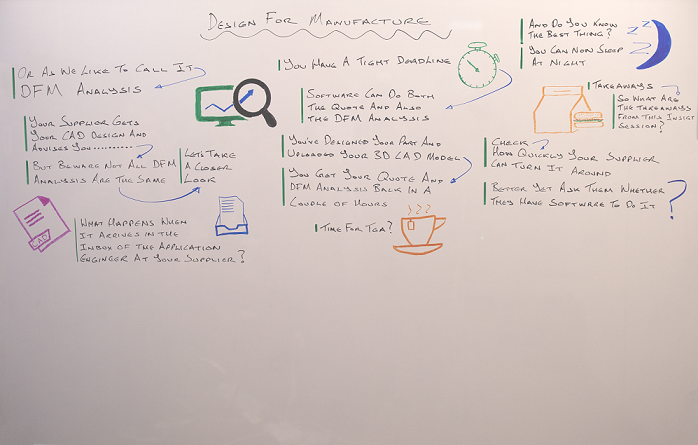 DESIGN FOR MANUFACTURE
OR AS WE LIKE TO CALL IT
DFM ANALYSIS
YOUR SUPPLIER GETS
YOUR CAD DESIGN AND
ADVISES YOU..........
BUT BEWARE NOT ALL DFM
ANALYSIS ARE THE SAME
LETS TAKE
A CLOSER
LOOK
CAD
WHAT HAPPENS WHEN
IT ARRIVES IN THE
INBOX OF THE APPLICATION
ENGINEER AT YOUR SUPPLIER?
YOU HAVE A TIGHT DEADLINE
SOFTWARE CAN DO BOTH
THE QUOTE AND ALSO
THE DFM ANALYSIS
YOU'VE DESIGNED YOUR PART AND
UPLOADED YOUR 3D CAD MODEL
YOU GET YOUR QUOTE AND
DFM ANALYSIS BACK IN A
COUPLE OF HOURS
TIME FOR TEA?
AND DO YOU KNOW
THE BEST THING?
YOU CAN NOW SLEEP
AT NIGHT
Z Z Z
TAKEAWAYS
SO WHAT ARE
THE TAKEAWAYS
FROM THIS INSIGT
SESSION?
CHECK
HOW QUICKLY YOUR SUPPLIER
CAN TURN IT AROUND
BETTER YET ASK THEM WHETHER
THEY HAVE SOFTWARE TO DO IT
?